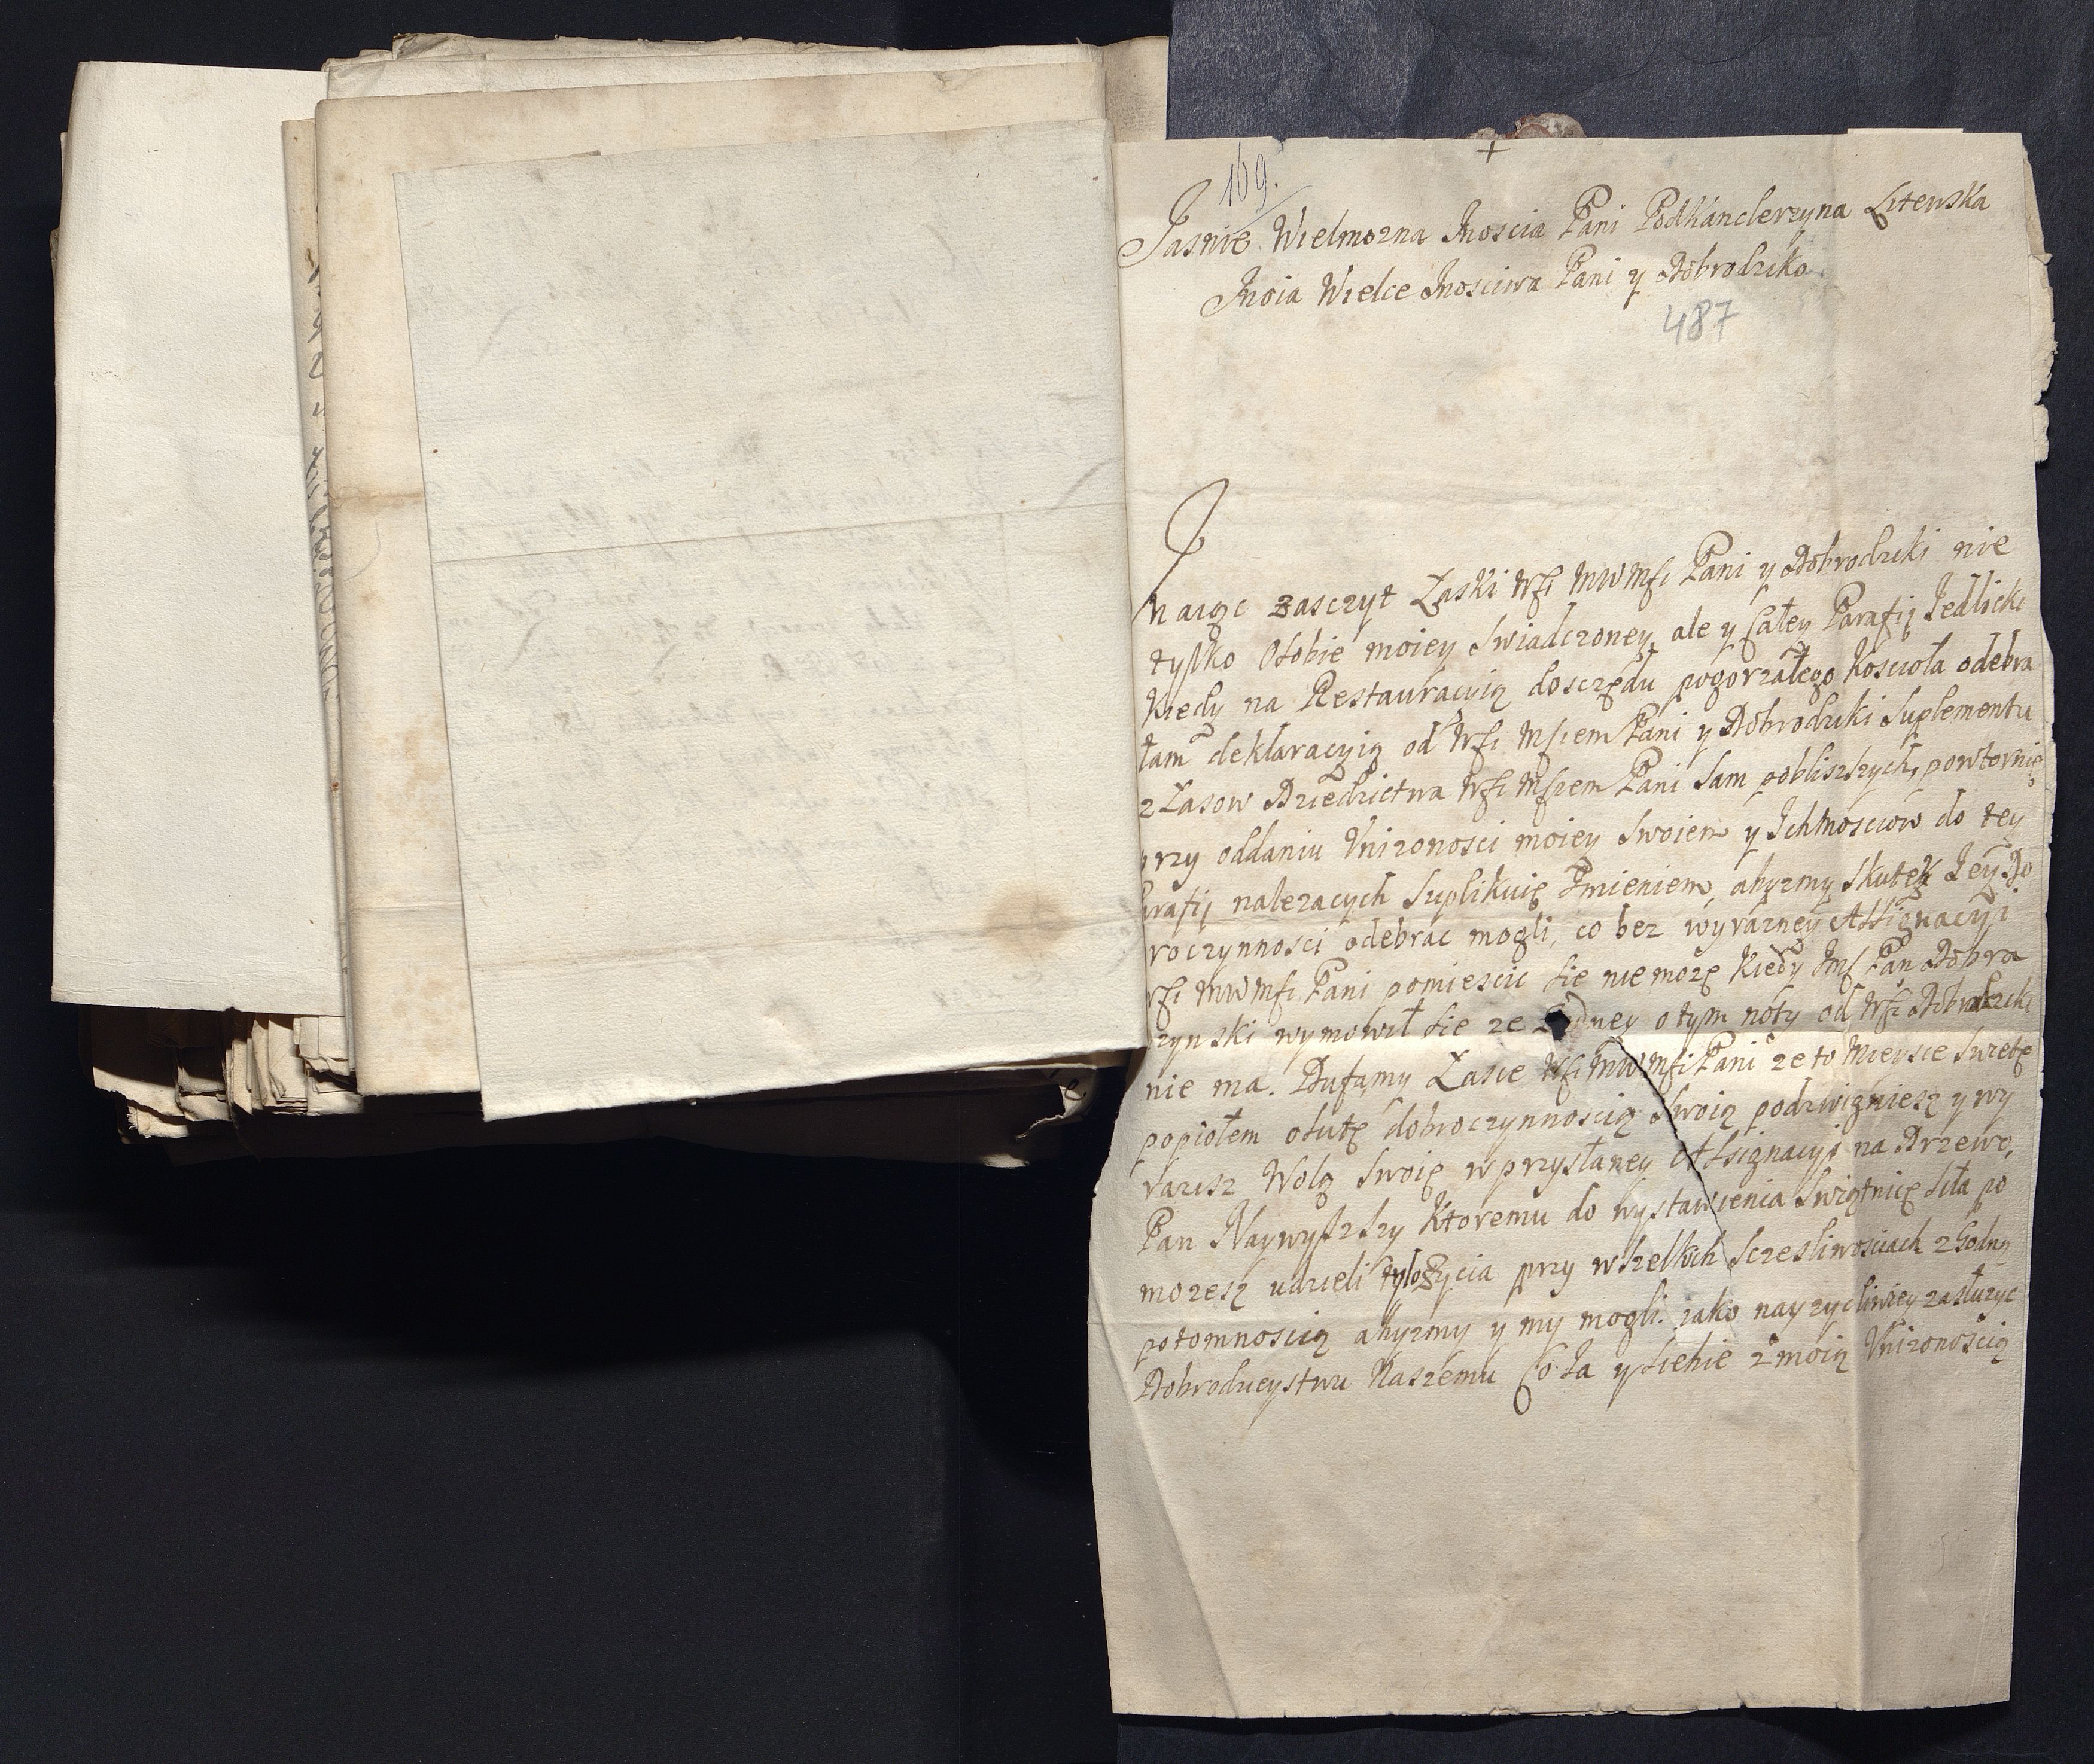 169.
Jasnie Wielmozna Moscia Pani Podkanclerzyna Litewska
Moia Wielce Mosciwa Pani y Dobrodziko
487
Maiąc zasczyt Łaski WSi MWMSi Pani y Dobrodziki nie
tylko Osobie moiey swiadczoney, ale y Całey Parafij Jedlicki
Kiedy na Restauracyią dosczędu pogorzałego Koscioła odebra
łam deklaracyią od WSi MSiem Pani y Dobrodziki Suplementu
z Lasow Dziedzictwa WSi MSiem Pani sam pobliszych, powtornię
przy oddaniu Vnizonosci moiey Swoiem y Ichmosciow do tey
Parafij nalezacych Suplikuię Imieniem, abyzmy skutek Jey Do
broczynnosci odebrac mogli, co bez wyrazney Assignacyi
WSi MWMSi Pani pomiescic sie niemozę Kiedy Jms Pan Dobra
czynski wymowił sie ze zadney o tym noty od WSi Dobrodziki
nie ma. Dufamy Łasce WSi MWMSi Pani ze to Mieysce Swietę
popiołem osutę dobroczynnoscią Swoią podzwigniesz y wy
razisz Wolą Swoię w przysłaney Assignacyi na Drzewo,
Pan Naywyszszy Ktoremu do wystawienia Swiątnicę siła po
mozesz udzieli tylo zycia przy wszelkich Sczesliwosciach z Godną
potomnoscią abyzmy y my mogli iako nayzycliwiey zasłuzyc
Dobrodzieystwu Naszemu Co Ja y siebie z moią Vnizonoscią